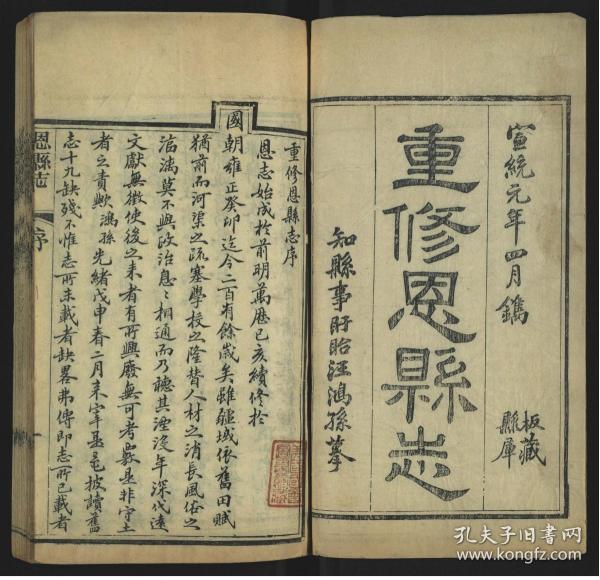 宣統元年四月鐫
板藏
縣庫
重修恩縣志
知縣事盱眙汪鴻孫摹
重修恩縣志序
恩志始成於前明萬歷己亥續修於
國朝雍正癸卯迄今二百有餘歲矣雖疆域依舊田賦
猶前而河渠之疏塞學校之隆替人材之消長風俗之
滀漓莫不與政治息〻相通而乃聽其湮沒年深代遠
文獻無徵使後之来者有所興廢無可考歟是非守土
者之責歟鴻孫光緒戊申春二月来宰是邑披讀舊
志十九缺殘不惟志所未載者缺畧弗傳即志所已載者
恩縣志
序
孔夫子旧书网
www.kongfz.com